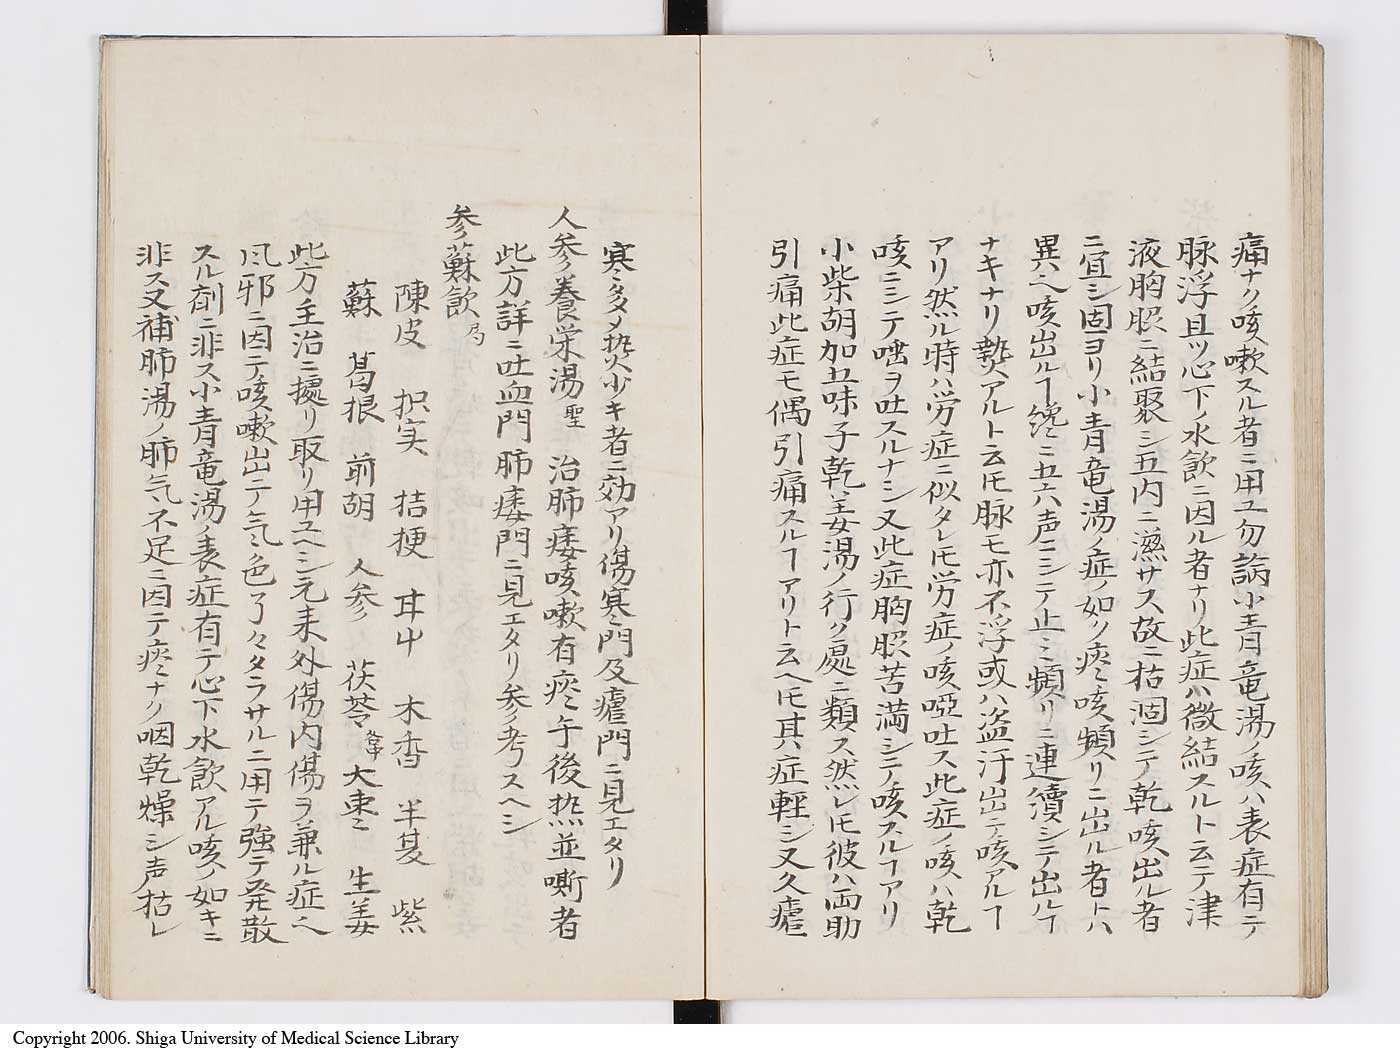 痛ナク咳嗽スル者ニ用ユ勿論小青竜湯ノ咳ハ表症有テ
脉浮且ツ心下ノ水飲ニ因ル者ナリ此症ハ微結スルト云テ津
液胸脇ニ結聚シ五内ニ濕サス故ニ枯涸シテ乾咳出ル者
ニ宜シ固ヨリ小青竜湯ノ症ノ如ク痰咳頻リニ出ル者トハ
異ヘ咳出ルヿ纔ニ五六声ニシテ止ミ頻リニ連續シテ出ルヿ
ナキナリ熱アルト云𪜈脉モ亦不浮或ハ盗汗出テ咳アルヿ
アリ然ル時ハ労症ニ似タレ𪜈労症ノ咳啞吐ス此症ノ咳ハ乾
咳ニシテ咄ヲ吐スルナシ又此症胸脇苦満シテ咳スルヿアリ
小柴胡加五味子乾姜湯ノ行ク處ニ類ス然レ𪜈彼ハ両助
引痛此症モ偶引痛スルヿアリト云ヘ𪜈其症軽シ又久瘧
寒多メ热少キ者ニ効アリ傷寒門及瘧門ニ見エタリ
人参養栄湯 聖 治肺痿咳嗽有痰午後热並嘶者
此方詳ニ吐血門肺痿門ニ見エタリ参考スヘシ
参蘇飲 局
陳皮 枳実 桔梗 甘屮 木香 半夏 紫
蘇 葛根 前胡 人参 茯苓 大棗 生姜
此方主治ニ據リ取リ用ユヘシ元来外傷内傷ヲ兼ル症ヘ
风邪ニ因テ咳嗽出テ気色了々タラサルニ用テ強テ発散
スル剤ニ非ス小青竜湯ノ表症有テ心下水飲アル咳ノ如キニ
非ス又補肺湯ノ肺気不足ニ因テ痰ナク咽乾燥シ声枯レ
Copyright 2006. Shiga University of Medical Science Library